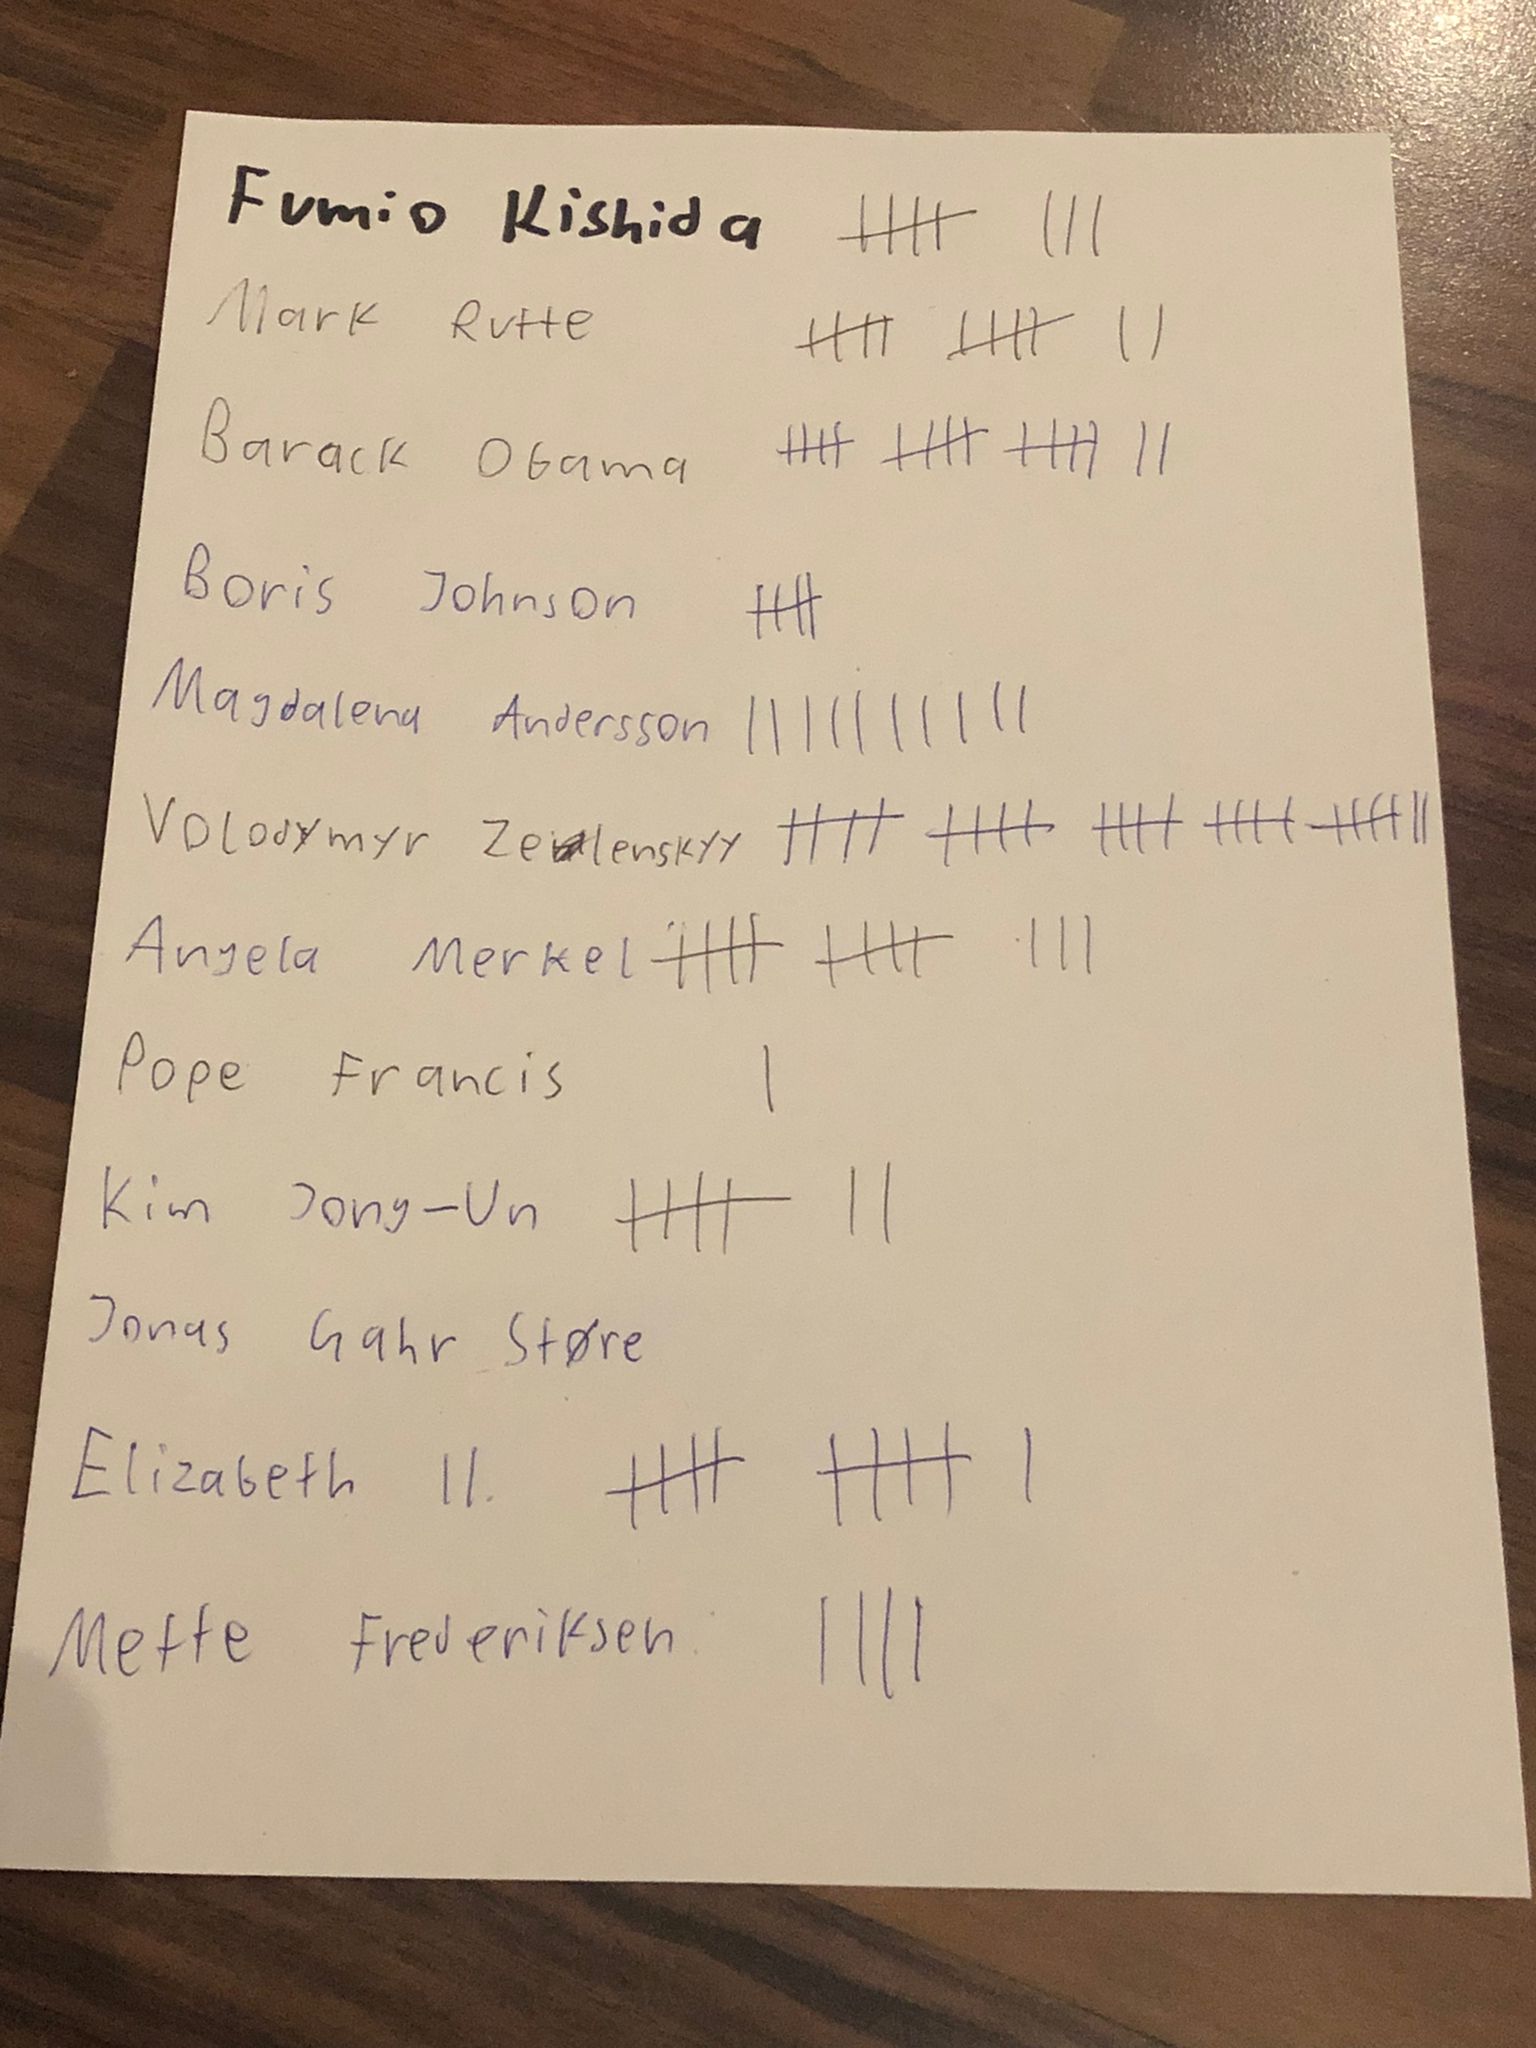 Fumio Kishida
Mark Rutte
Barack Obama
Boris Johnson
Magdalena Andersson
Volodymyr Zelenskyy
Angela Merkel
Pope Francis
Kim Jong-Un
Jonas Gahr Støre
Elizabeth II.
Mette Frederiksen